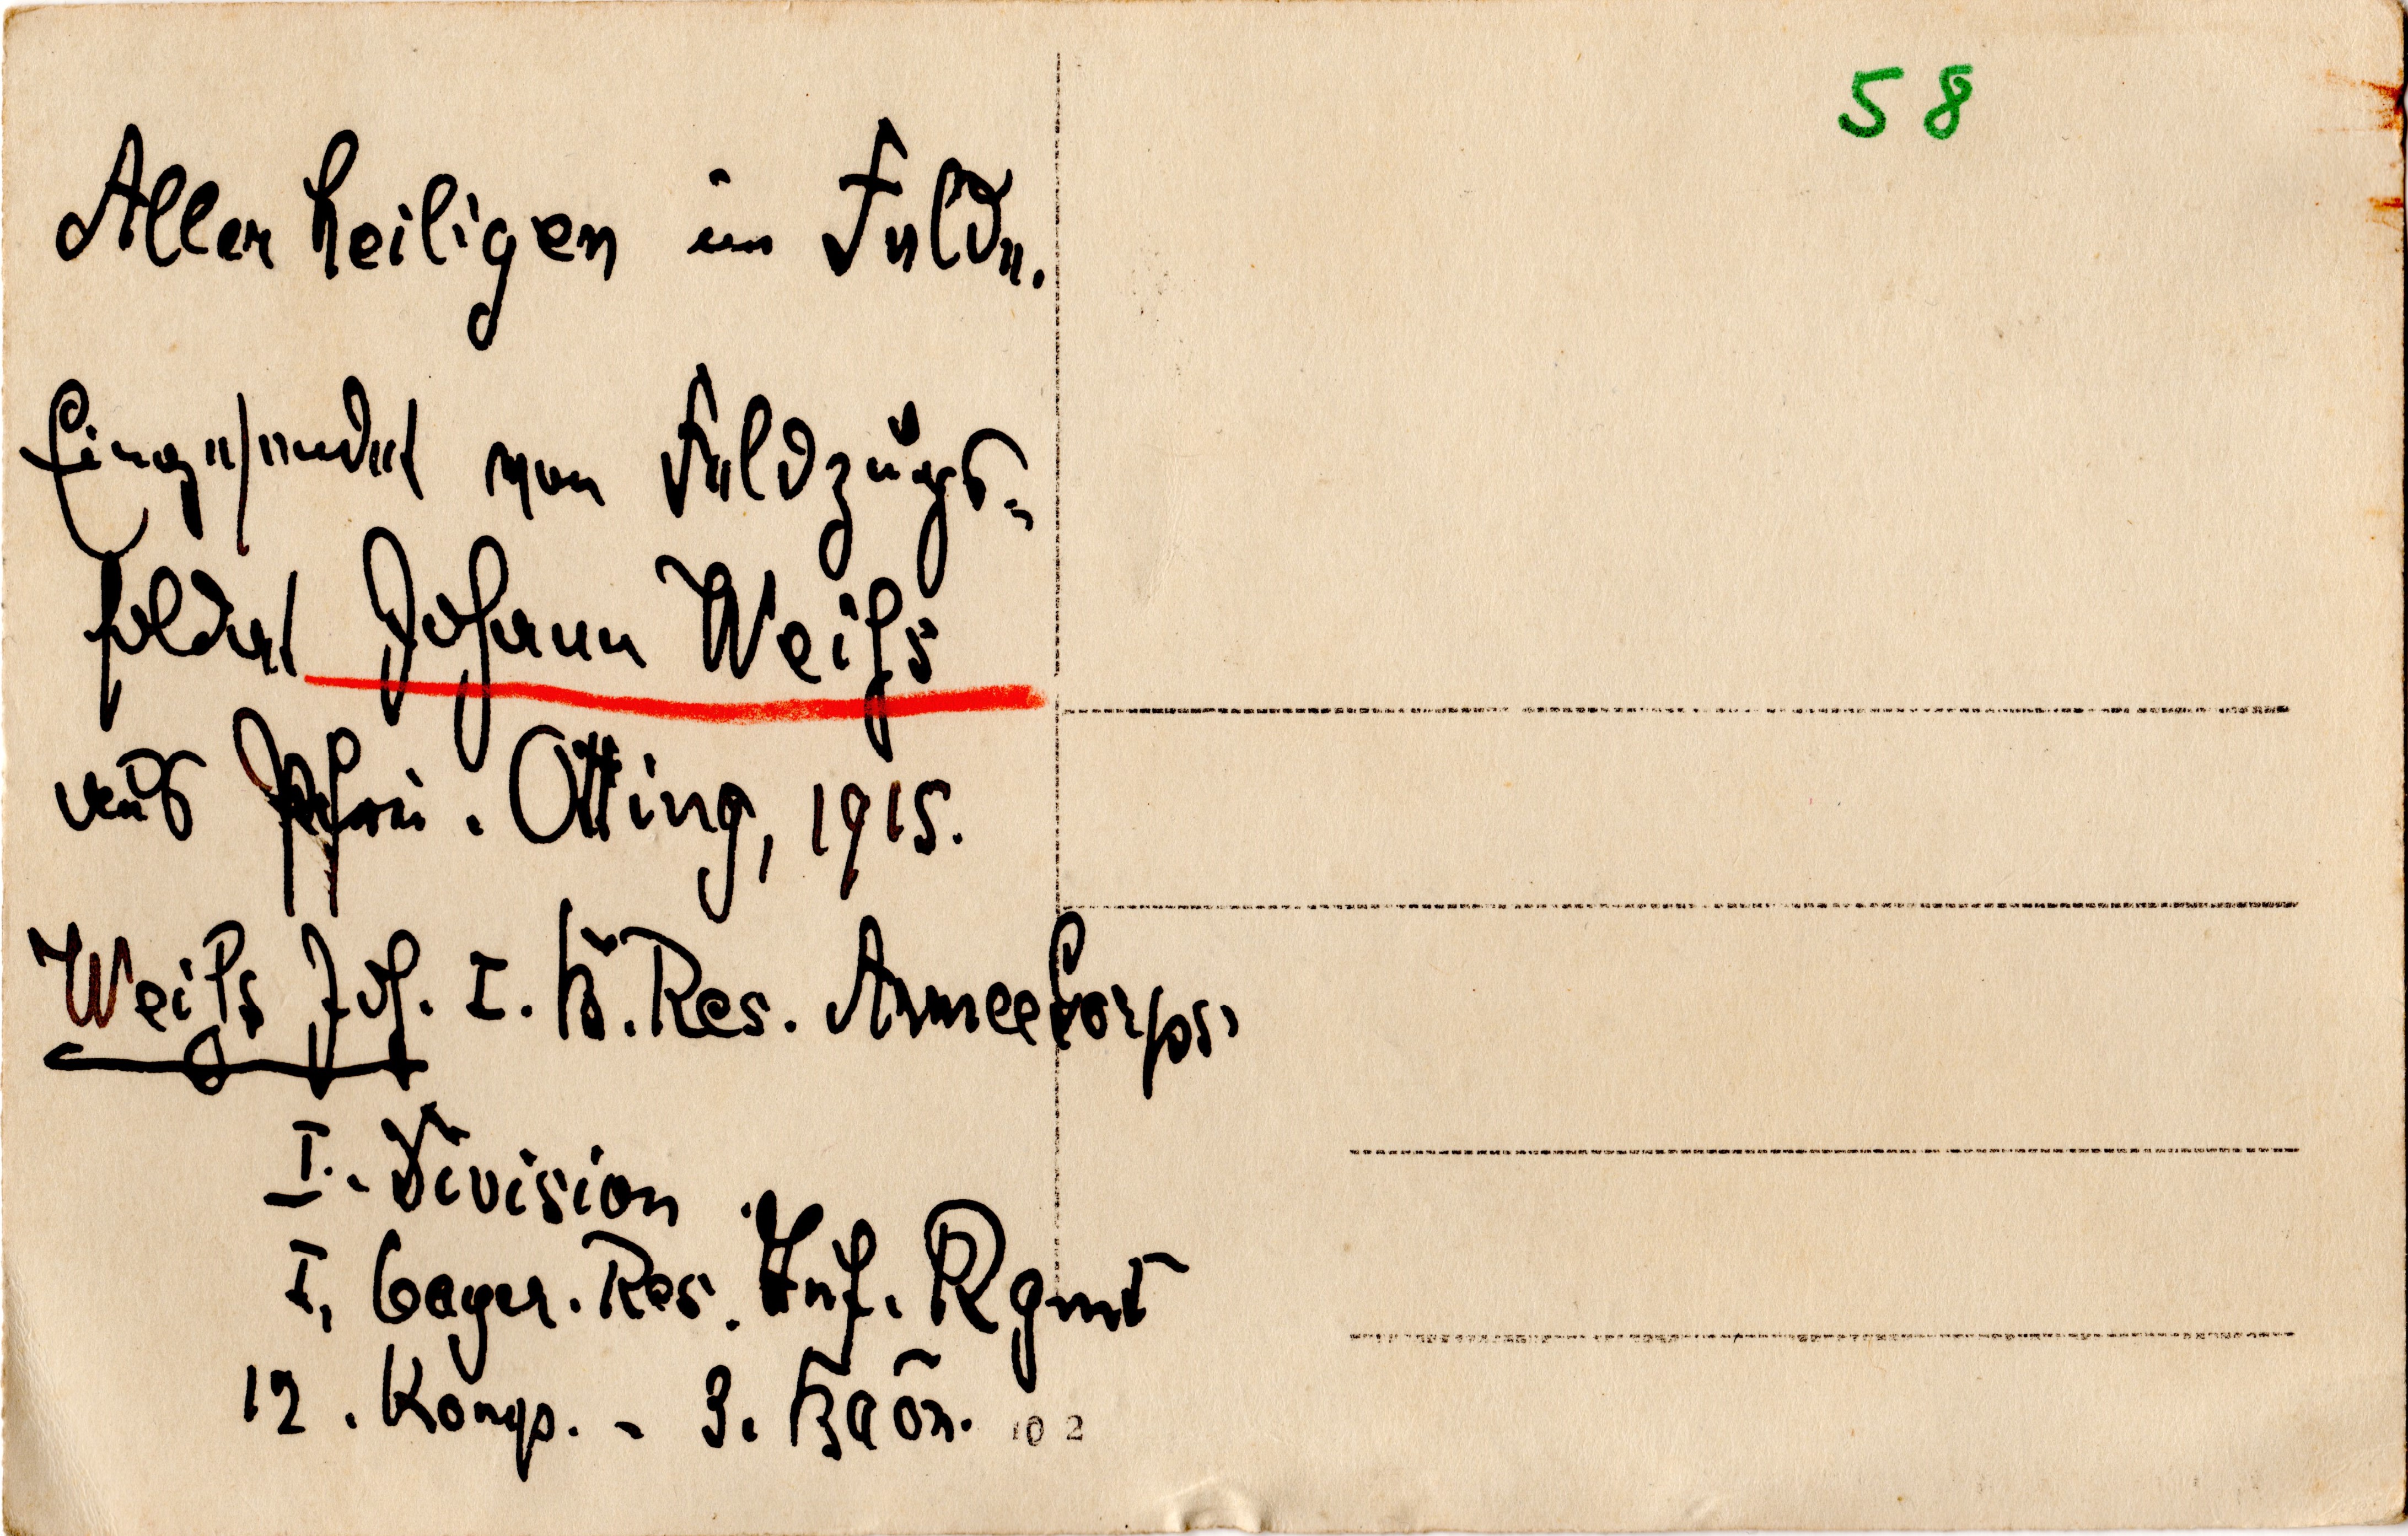 58
Aller heiligen im Felde.
Eingesendet von Feldzugs-
soldat Johann Weiß
aus Otting, 1915.
Weiß Joh. I. B. Res. Armeekorps.
I. - Division
I. bayer. Res. Inf. Rgmt
12. Komp. - 3. Baōn.
102